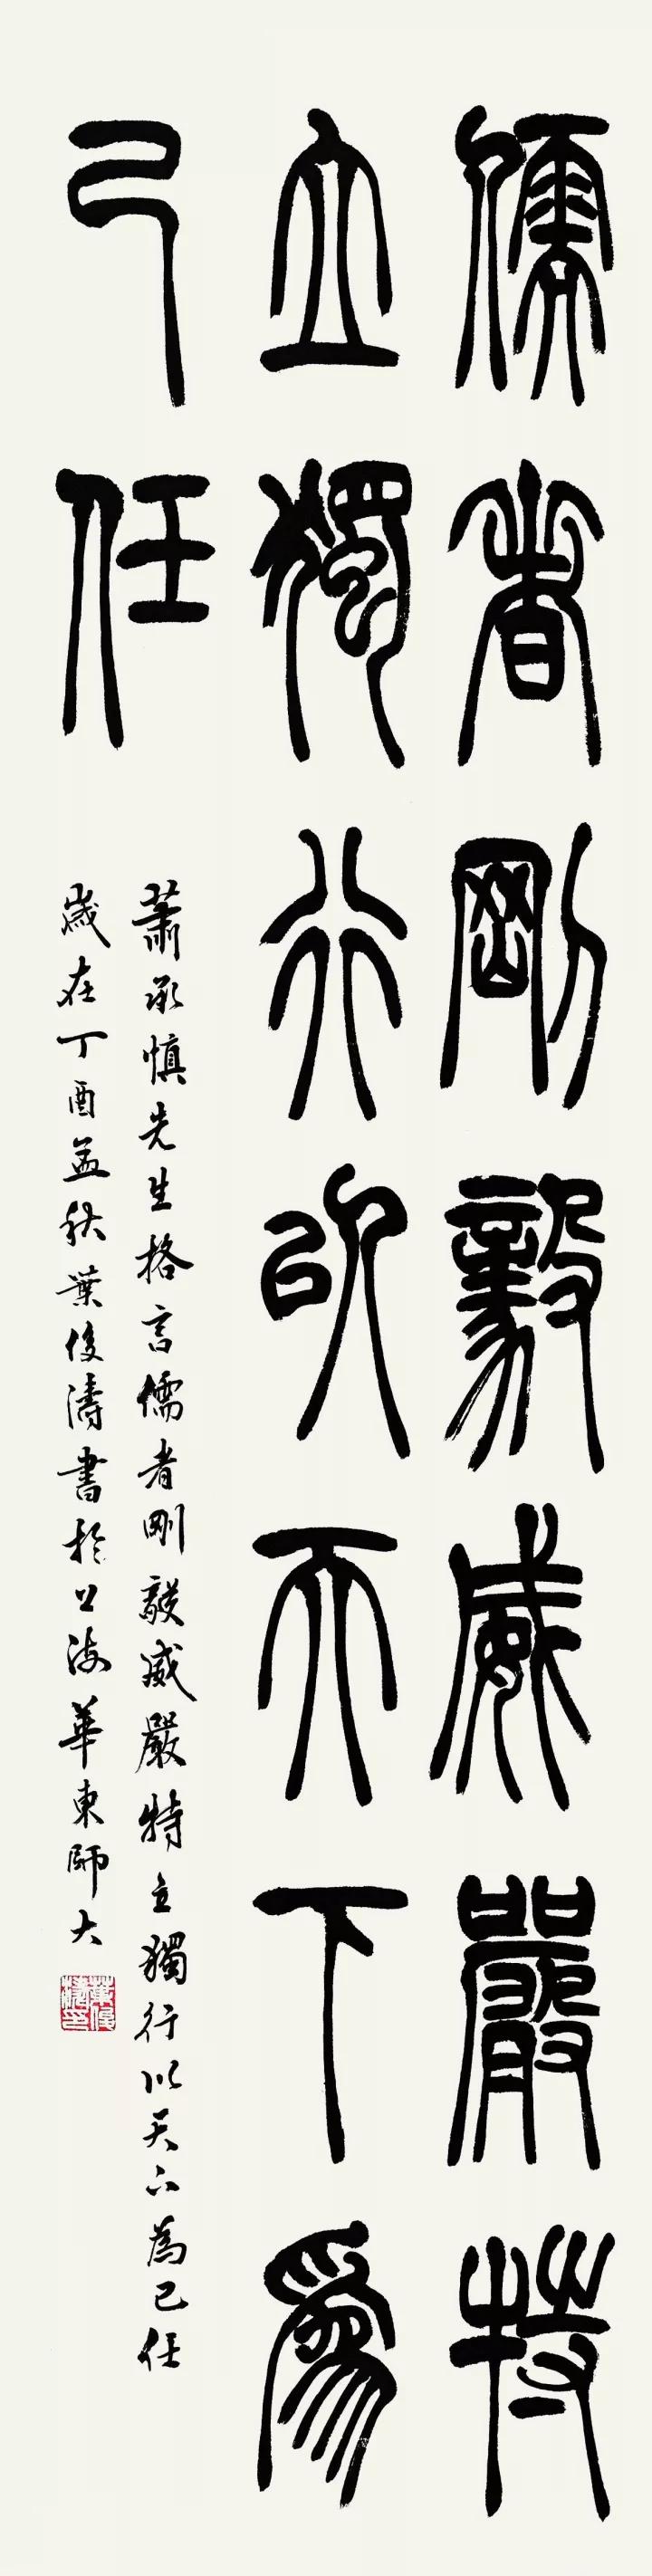 儒者剛毅威嚴特
立獨行以天下爲
己任
蕭承慎先生格言儒者剛毅威嚴特立獨行以天下為己任
歲在丁酉孟秋葉俊濤書於上海華東師大
葉俊濤印